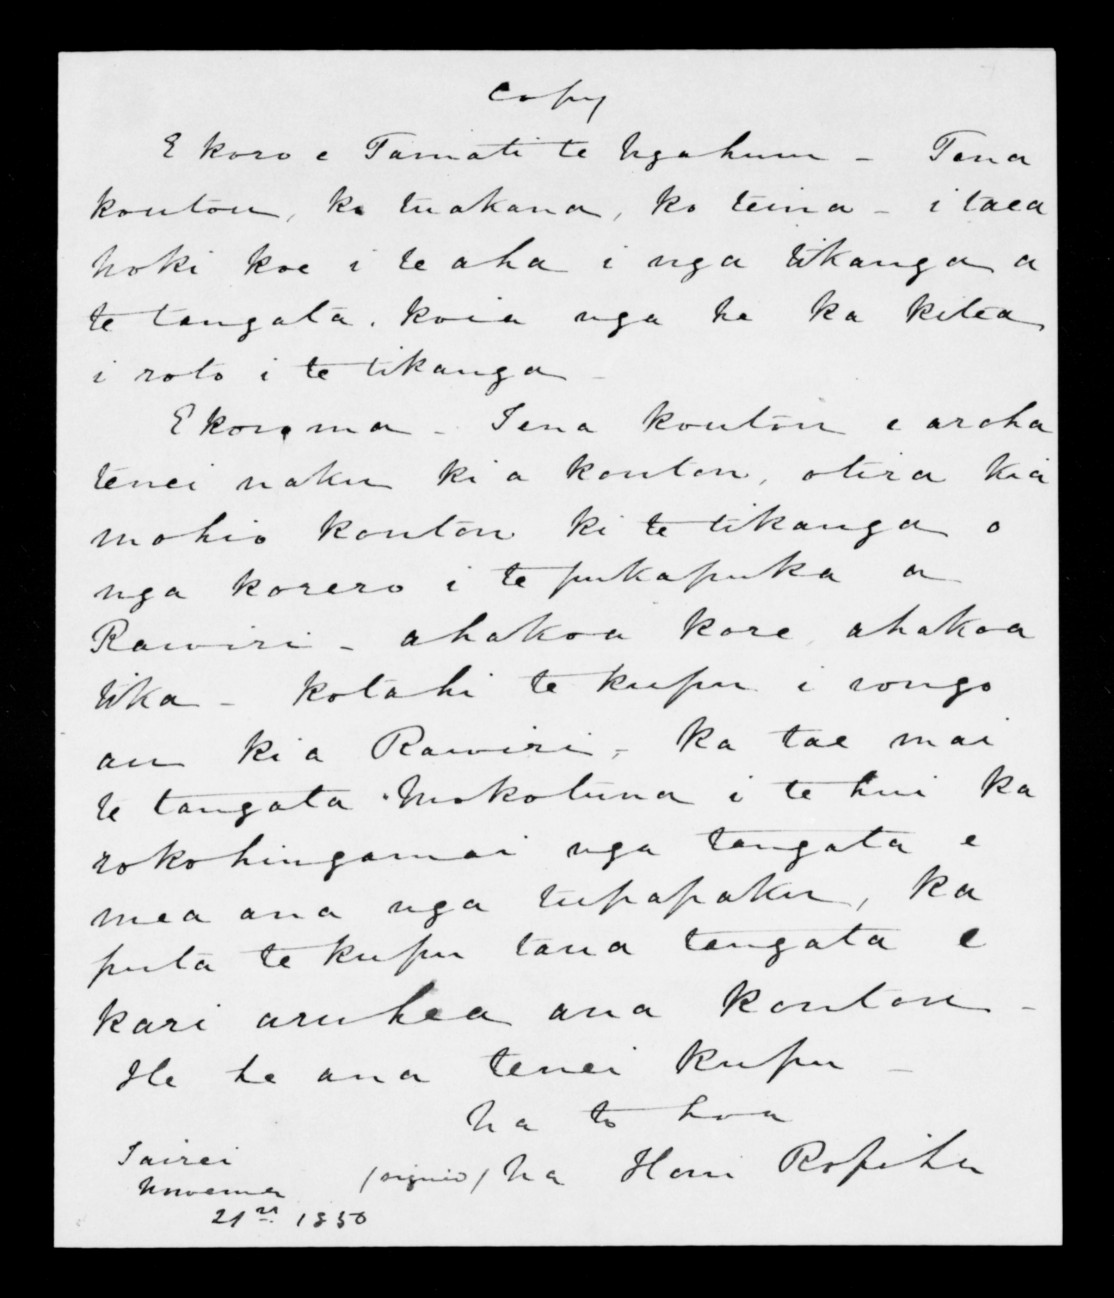 Copy
E koro e Tamati te Ngahuru - Tena
koutou, ko tuakana, ko teina - i taea
hoki koe i te aha i nga tikanga a
te tangata. koia nga he ka kitea
i roto i te tikanga -
E koro ma - Tena koutou e aroha
tenei naku ki a koutou, otira kia
mohio koutou ki te tikanga o
nga korero i te pukapuka a
Rawiri - ahakoa kore, ahakoa
tika - kotahi te kupu i rongo
au ki a Rawiri, ka tae mai
te tangata Mokotuna i te hui ka
rokohingamai nga tangata e
mea ana nga tupapaku, ka
puta te kupu tana tangata e
kari aruhea ana koutou -
He he ana tenei kupu -
Na to hoa
(signed) Na Honi Ropiha
Tairei
Novema
21st 1850